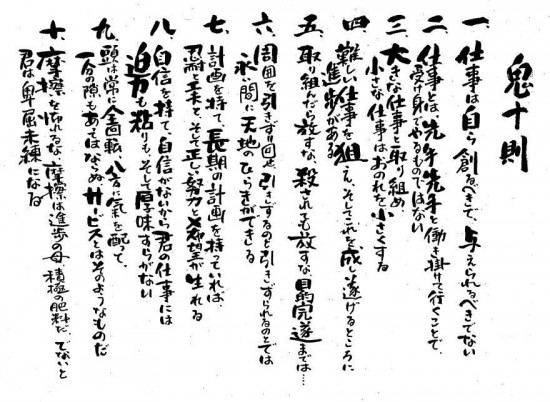 鬼十則
一、仕事は自ら創るべきで、与えられるべきでない
二、仕事とは、先手先手と働き掛けて行くことで、
受け身でやるものではない
三、大きな仕事と取り組め
小さな仕事はおのれを小さくする
四、難しい仕事を狙え、そしてこれを成し遂げるところに
進歩がある
五、取り組んだら放すな、殺されても放すな、目的完遂までは……
六、周囲を引きずり回せ、引きずるのと引きずられるのとでは
永い間に天地のひらきができる
七、計画を持て、長期の計画を持っていれば、
忍耐と工夫と、そして正しい努力と希望が生れる
八、自信を持て、自信がないから君の仕事には
迫力も粘りも、そして厚味すらがない
九、頭は常に全回転、八方に氣を配って、
一分の隙もあってはならぬ、サービスとはそのようなものだ
十、摩擦を怖れるな、摩擦は進歩の母、積極の肥料だ、でないと
君は卑屈未練になる